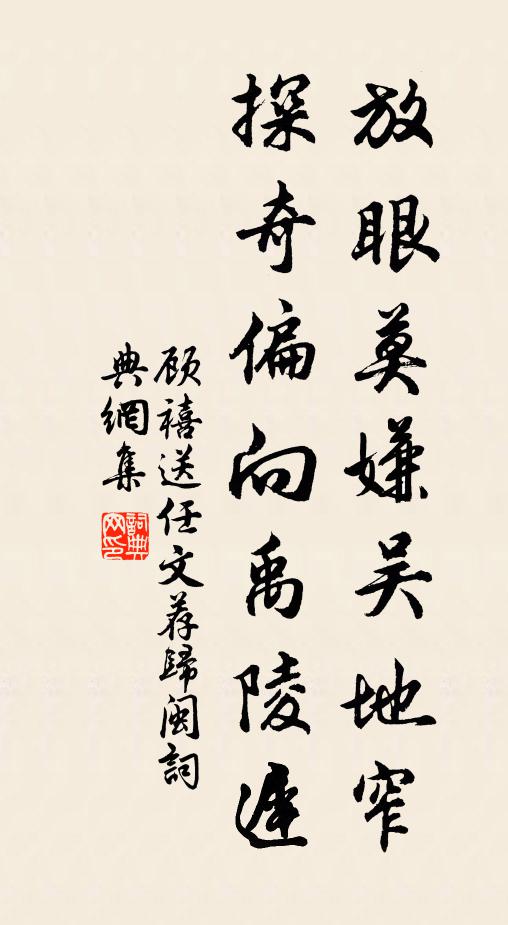 放眼莫嫌吴地窄
探奇偏向禹陵遲
顾禧送任文荐歸閩詞
典網集
詞典网印